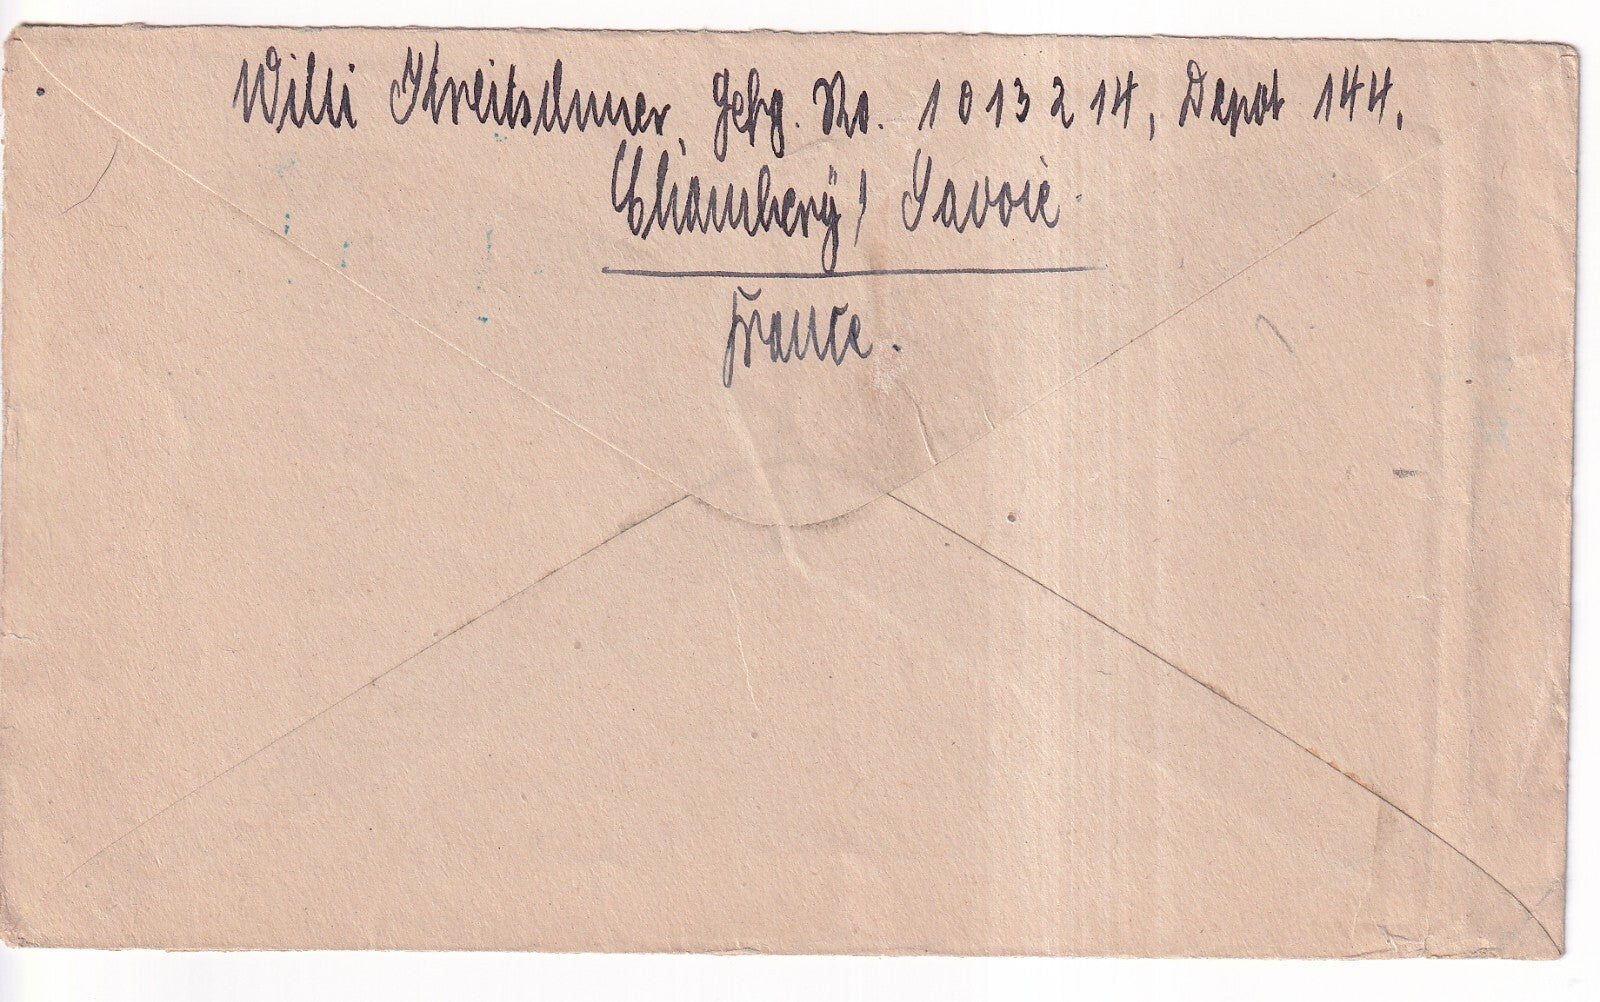 Willi Kreitschmer, Gefg. No. 1013214, Depot 144.
Chambery / Savoie.
France.